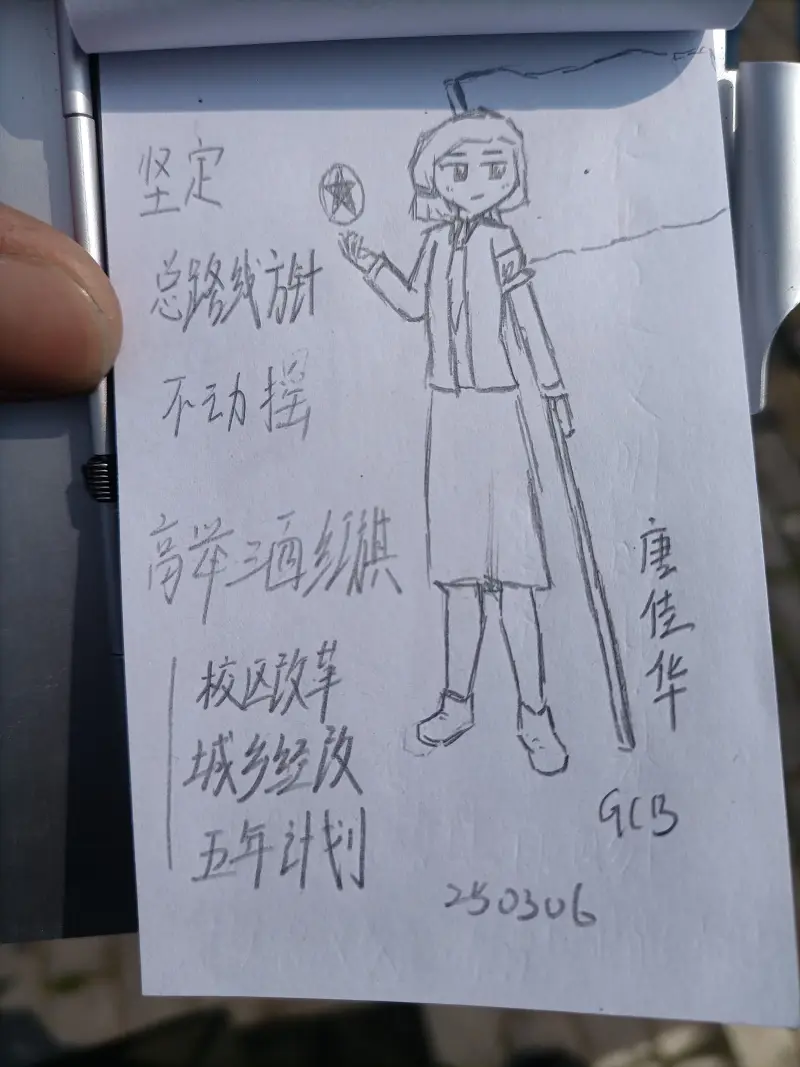 坚定
总路线方针
不动摇
高举三面红旗
校区改革
城乡经改
五年计划
唐佳华
GCB
250306